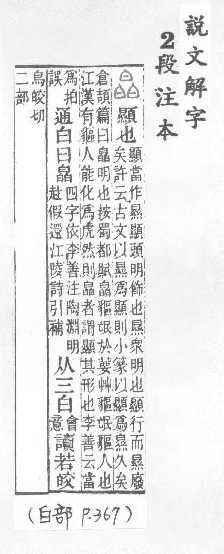 説文解字
2段注本
顯也
顯當作㬎顯頭明飾也㬎衆明也顯行而㬎廢
矣許云古文以㬎爲顯則小篆以顯爲㬎久矣
倉頡篇曰皛明也按蜀都賦皛貙氓於葽艸貙氓貙人也
江漢有貙人能化爲虎然則皛者謂顯其形也李善云當
爲拍
誤
通白曰皛
四字依李善注陶淵明
赴假還江陵詩引補
从三白
會
意
讀若皎
烏皎切
二部
(白部 P.367)